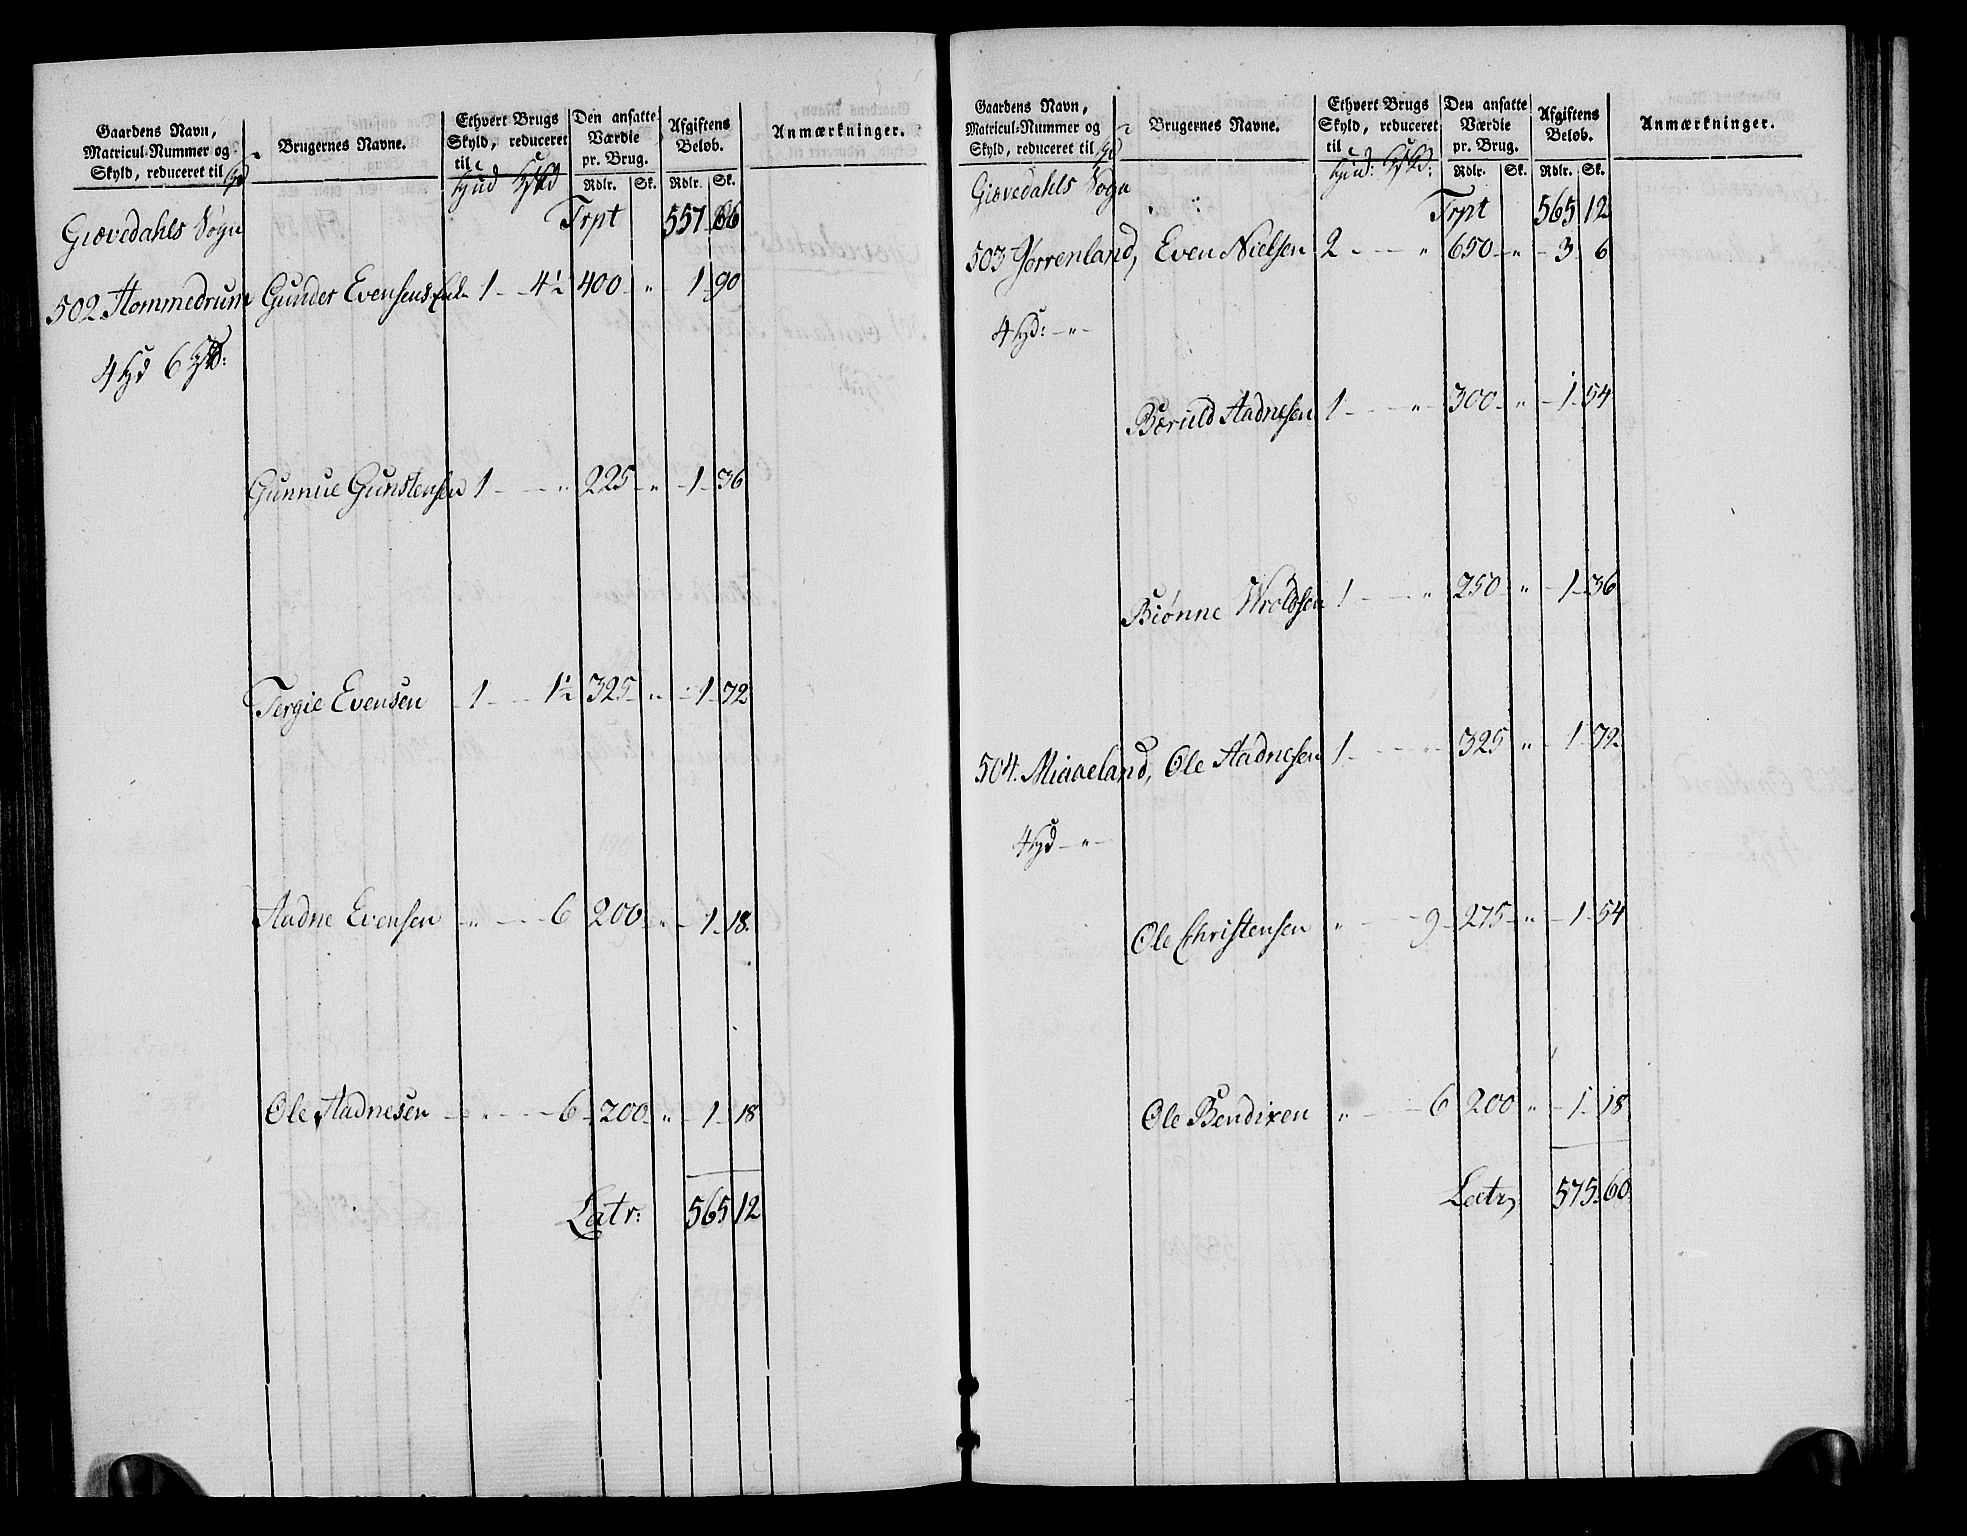 Gaardens Navn, Matricul-Nummer og Skyld, reduceret til Hd
Brugernes Navne.
Ethvert Brugs Skyld, reduceret til Hud HSkd
Den ansatte Værdie pr. Brug. Rdlr. Sk.
Afgiftens Beløb. Rdlr. Sk.
Anmærkninger.
Giævedahls Sogn Trpt 557 66
502 Hommedrum Gunder Evensens Enke 1 - 4½ 400 " 1 90
4 Hd 6 HSkd:
Gunnue Gunstensen 1 - " 225 " 1 36
Tergie Evensen 1 - 1½ 325 " 1 72
Aadne Evensen " - 6 200 " 1 18
Ole Aadnesen " - 6 200 " 1 18
Latr: 565 12
Gaardens Navn, Matricul-Nummer og Skyld, reduceret til Hd
Brugernes Navne.
Ethvert Brugs Skyld, reduceret til Hud: HSkd:
Den ansatte Værdie pr. Brug. Rdlr. Sk.
Afgiftens Beløb. Rdlr. Sk.
Anmærkninger.
Giævedahls Sogn Trpt 565 12
503 Jørrenland, Even Nielsen 2 - " 650 " 3 6
4 Hd: - " -
Bæruld Aadnesen 1 - " 300 " 1 54
Biønne Wroldsen 1 - " 250 " 1 36
504. Miaaeland, Ole Aadnesen 1 - " 325 " 1 72
4 Hd - " -
Ole Christensen " - 9 275 " 1 54
Ole Bendixen " - 6 200 " 1 18
Latr, 575 60